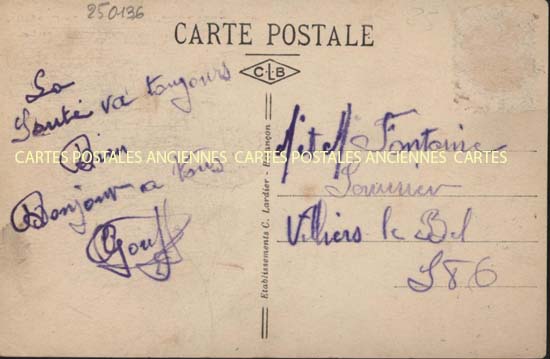 250136
CARTE POSTALE
CLB
La
Santé va toujours
Bien
Bonjour a tous
M et Mme Fontaine
Villiers le Bel
S & O
Etablissements C. Lardier - Besançon
CARTES POSTALES ANCIENNES CARTES POSTALES ANCIENNES CARTES